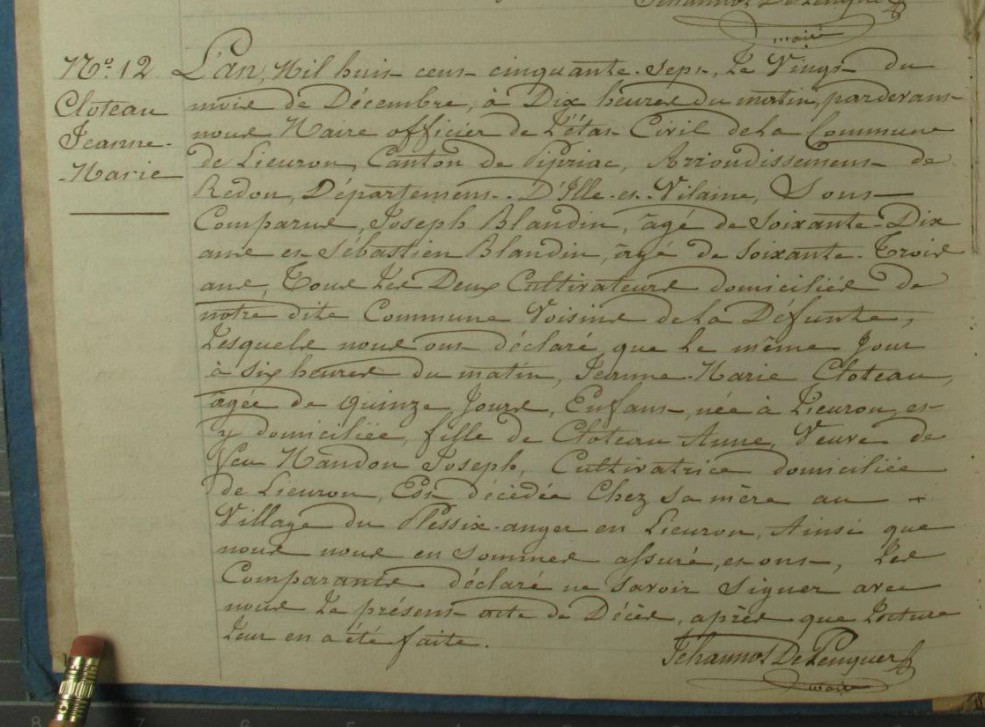 maire
N.° 12
Cloteau
Jeanne-
Marie
L'an, Mil huit cent cinquante-Sept, Le Vingt du
mois de Décembre, à Dix heures du matin, pardevant
nous Maire officier de L'état Civil de La Commune
de Lieuron, Canton de Pipriac, Arrondissement de
Redon, Département D'Ille-et-Vilaine, Sont
Comparus, Joseph Blandin, âgé de Soixante-Dix
ans et Sébastien Blandin, âgé de Soixante-Trois
ans, Tous Les Deux Cultivateurs domiciliés de
notre dite Commune Voisins de La Défunte,
Lesquels nous ont déclaré que Le même Jour
à Six heures du matin, Jeanne-Marie Cloteau,
agée de Quinze Jours, Enfant, née à Lieuron, et
y domiciliée, fille de Cloteau Anne, Veuve de
feu Mandon Joseph, Cultivatrice domiciliée
de Lieuron, Est décédée Chez Sa mère au
Village du Plessix-anger en Lieuron, Ainsi que
nous nous en Sommes assuré, et ont, Les
Comparants déclaré ne Savoir Signer avec
nous Le présent acte de Décès, après que Lecture
Leur en a été faite.
Jehannot De Penquer
maire